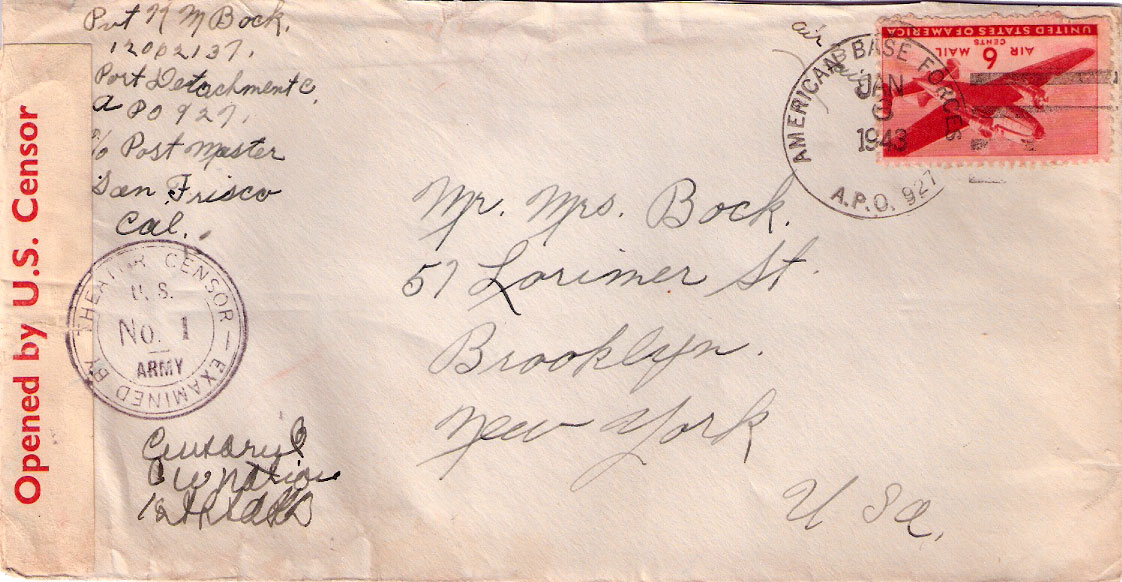 Pvt H M Bock.
12002137.
Port Detachment C.
A PO 927.
c/o Post Master
San Frisco
Cal.
Opened by U.S. Censor
EXAMINED BY THEATER CENSOR
U.S.
No. 1
ARMY
air
AMERICAN BASE FORCES
JAN
3
1943
A.P.O. 927
UNITED STATES OF AMERICA
AIR 6 MAIL
CENTS
Mr. Mrs. Bock.
57 Lorimer St.
Brooklyn.
New York
U Sa.